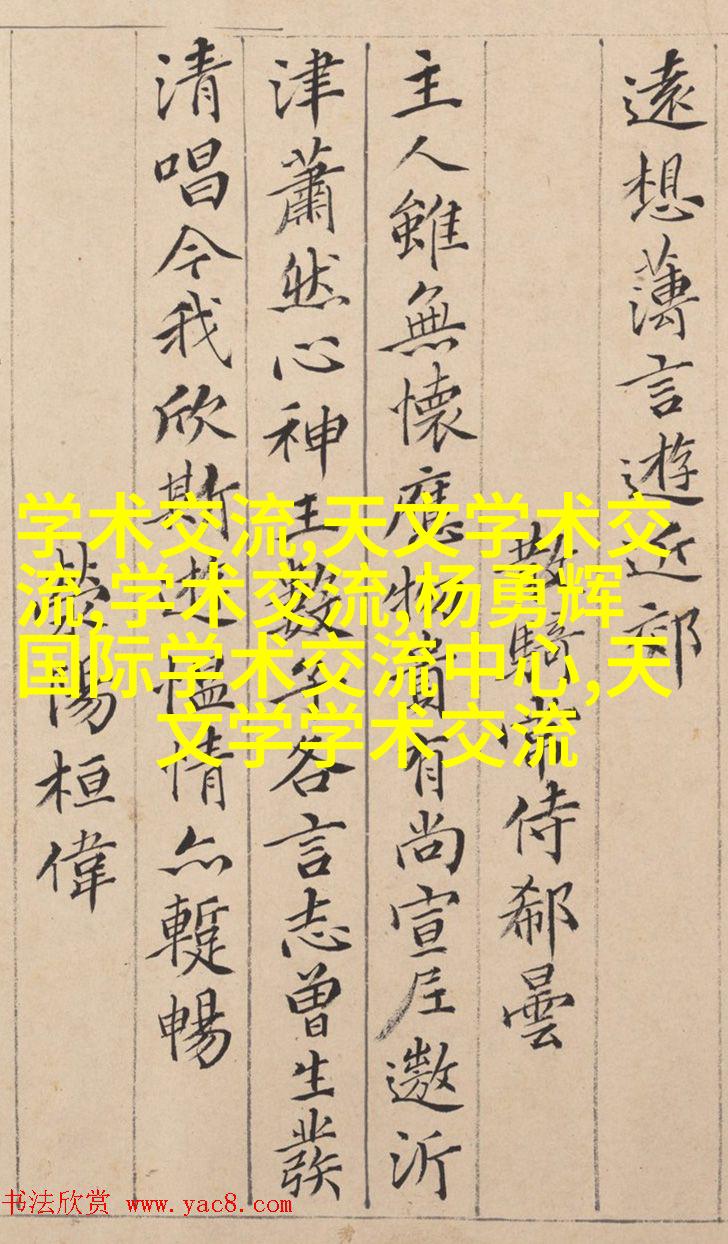 遠想薄言遊近郊
散騎常侍郗曇
主人雖無懷應物貴有尚宣尼遨沂
津蕭然心神王數子各言志曾生發
清唱今我欣斯遊慍情亦暫暢
陽桓偉
学术交流,天文学术交
流,学术交流,杨勇辉
国际学术交流中心,天
文学学术交流
书法欣赏 www.yac8.com